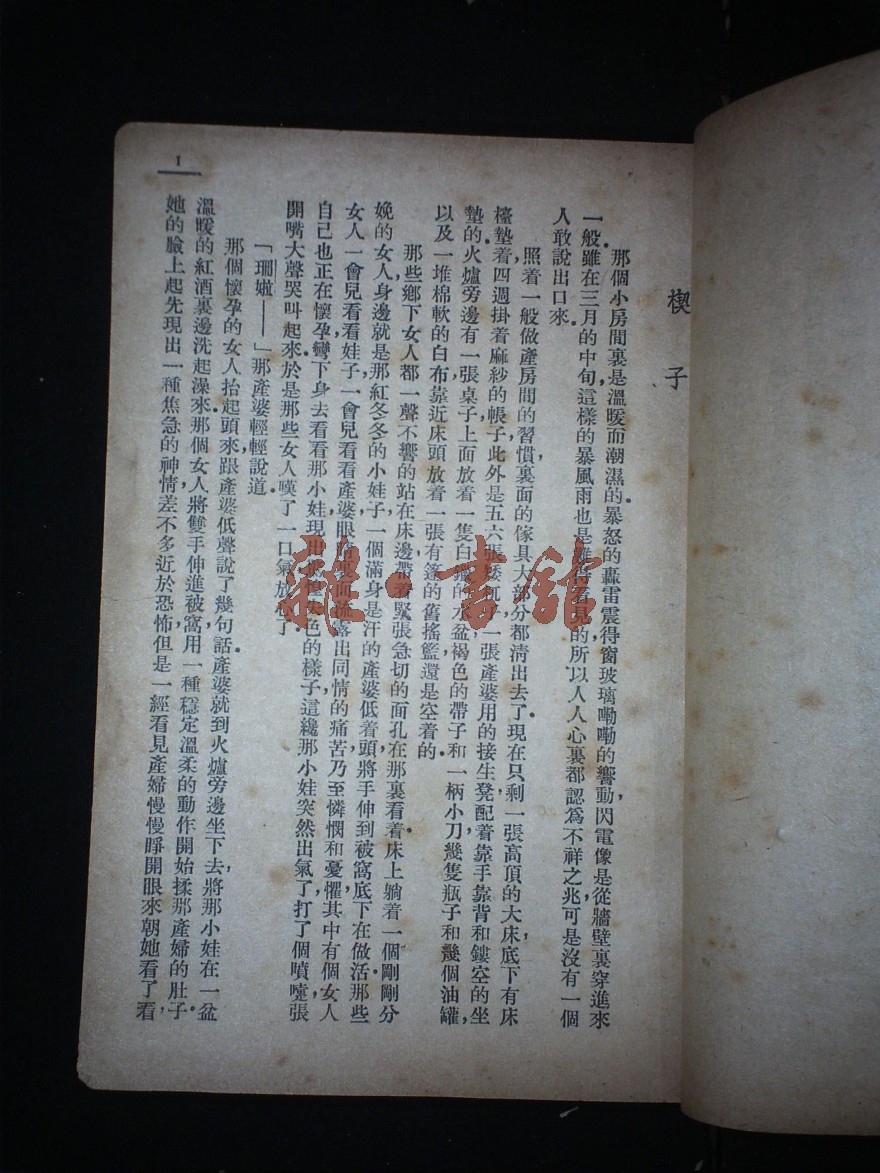 楔子
那個小房間裏是溫暖而潮濕的。暴怒的轟雷震得窗玻璃嘞嘞的響動，閃電像是從牆壁裏穿進來
一般。雖在三月的中旬，這樣的暴風雨也是難得看見的，所以人人心裏都認爲不祥之兆，可是沒有一個
人敢說出口來。
照着一般做產房間的習慣，裏面的傢具大部分都清出去了。現在只剩一張高頂的大床，底下有床
檯墊着，四週掛着麻紗的帳子。此外是五六張矮杌子，一張產婆用的接生凳，配着靠手靠背和鏤空的坐
墊的。火爐旁邊有一張桌子，上面放着一隻白鑞的水盆，褐色的帶子和一柄小刀，幾隻瓶子和幾個油罐，
以及一堆棉軟的白布。靠近床頭放着一張有篷的舊搖籃，還是空着的。
那些鄉下女人都一聲不響的站在床邊，帶着緊張急切的面孔在那裏看着。床上躺着一個剛剛分
娩的女人，身邊就是那紅冬冬的小娃子，一個滿身是汗的產婆低着頭，將手伸到被窩底下在做活。那些
女人一會兒看看娃子，一會兒看看產婆，眼睛裏面流露出同情的痛苦，乃至憐憫和憂懼。其中有個女人，
自己也正在懷孕，彎下身去看看那小娃，現出
色的樣子。這纔那小娃突然出氣了，打了個噴嚏，張
開嘴大聲哭叫起來。於是那些女人嘆了一口氣，放心了。
「珊啦——」那產婆輕輕說道。
那個懷孕的女人抬起頭來，跟產婆低聲說了幾句話。產婆就到火爐旁邊坐下去，將那小娃在一盆
溫暖的紅酒裏邊洗起澡來。那個女人將雙手伸進被窩，用一種穩定溫柔的動作開始揉那產婦的肚子。
她的臉上起先現出一種焦急的神情，差不多近於恐怖，但是一經看見產婦慢慢睜開眼來朝她看了看，
1
雜·書館